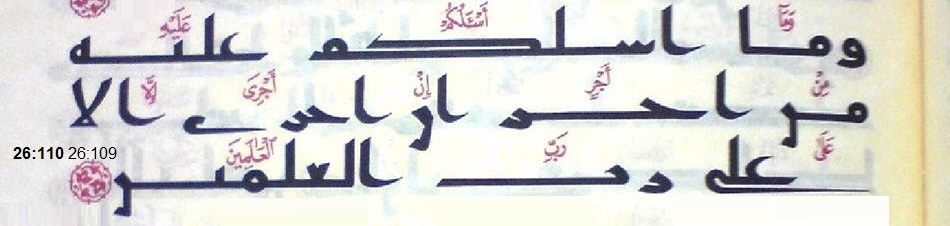 وَمَآ أَسْـَٔلُكُمْ عَلَيْهِ
وما اسلكم عليه
مِنْ أَجْرٍ إِنْ أَجْرِىَ إِلَّا
من اجر ان اجرى الا
عَلَىٰ رَبِّ ٱلْعَٰلَمِينَ
على رب العلمين
26:110 26:109